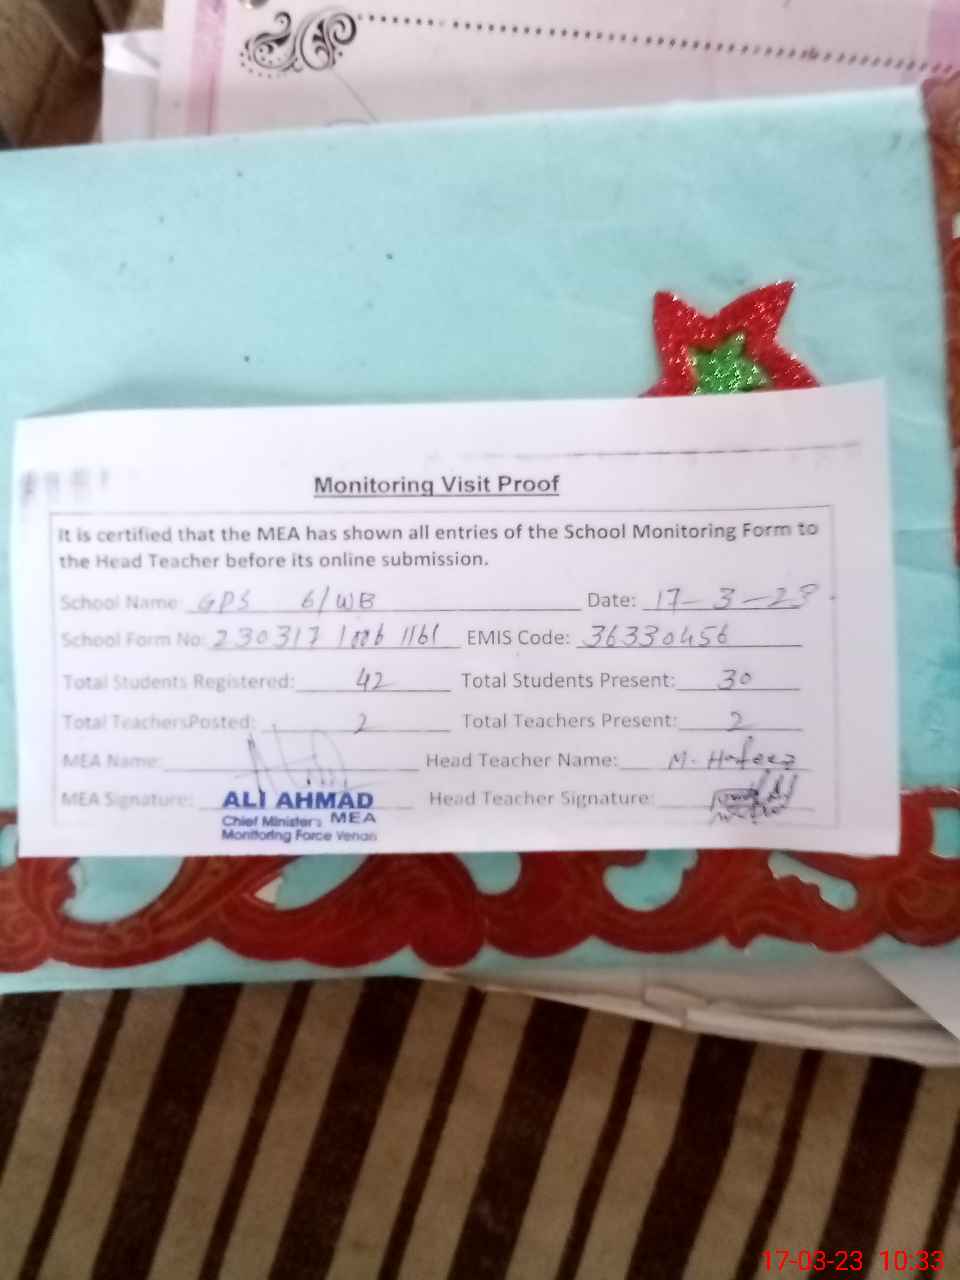 Monitoring Visit Proof
It is certified that the MEA has shown all entries of the School Monitoring Form to
the Head Teacher before its online submission.
School Name: GPS 6/WB Date: 17-3-23
School Form No: 230317 EMIS Code: 36330456
Total Students Registered: 42 Total Students Present: 30
Total TeachersPosted: 2 Total Teachers Present: 2
MEA Name: Head Teacher Name: M. Hafeez
MEA Signature: Head Teacher Signature:
ALI AHMAD
Chief Minister's MEA
Monitoring Force Vehari
17-03-23 10:33